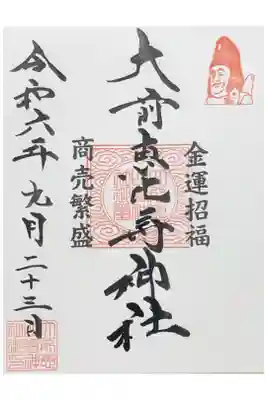 金運招福
大前恵比寿神社
商売繁盛
令和六年九月二十三日